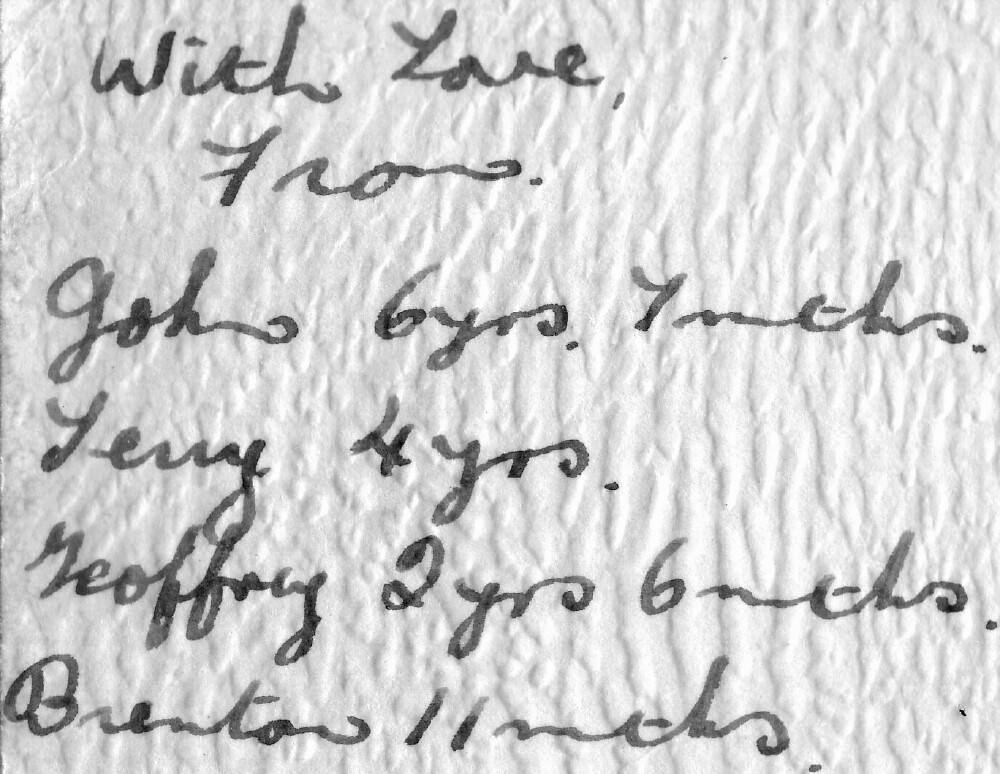 With Love,
From.
John 6yrs. 7mths.
Terry 4yrs.
Geoffrey 2yrs 6mths.
Brenton 11mths.